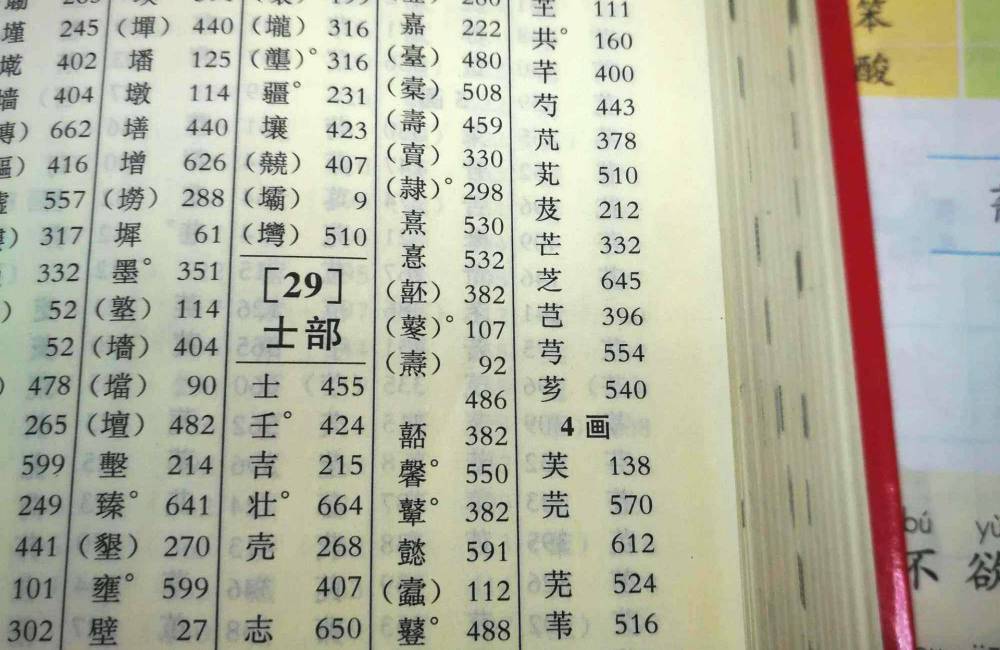 245
402
墙 404
662
416
墟 557
317
332
52
52
478
265
599
249
441
101
302
(墠) 440
墦 125
墩 114
墡 440
增 626
288
墀 61
墨° 351
(墪) 114
(墻) 404
(壋) 90
(壇) 482
墼 214
臻° 641
(墾) 270
壅° 599
壁 27
(壠) 316
(壟)° 316
疆° 231
壤 423
407
(壩) 9
(壪) 510
[29]
士部
士 455
壬° 424
吉 215
壮° 664
壳 268
407
志 650
嘉 222
(臺) 480
508
(壽) 459
(賣) 330
(隷)° 298
熹 530
憙 532
382
(鼕)° 107
(燾) 92
486
嚭 382
馨° 550
鼙° 382
懿 591
(蠧) 112
鼟° 488
芏 111
共° 160
芊 400
芍 443
芃 378
芄 510
芨 212
芒 332
芝 645
芑 396
芎 554
芗 540
4 画
芙 138
芫 570
612
芜 524
苇 516
笨
酸
bú
不 欲